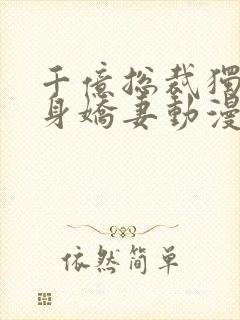 千億總裁獨
身嬌妻動漫
依然简单